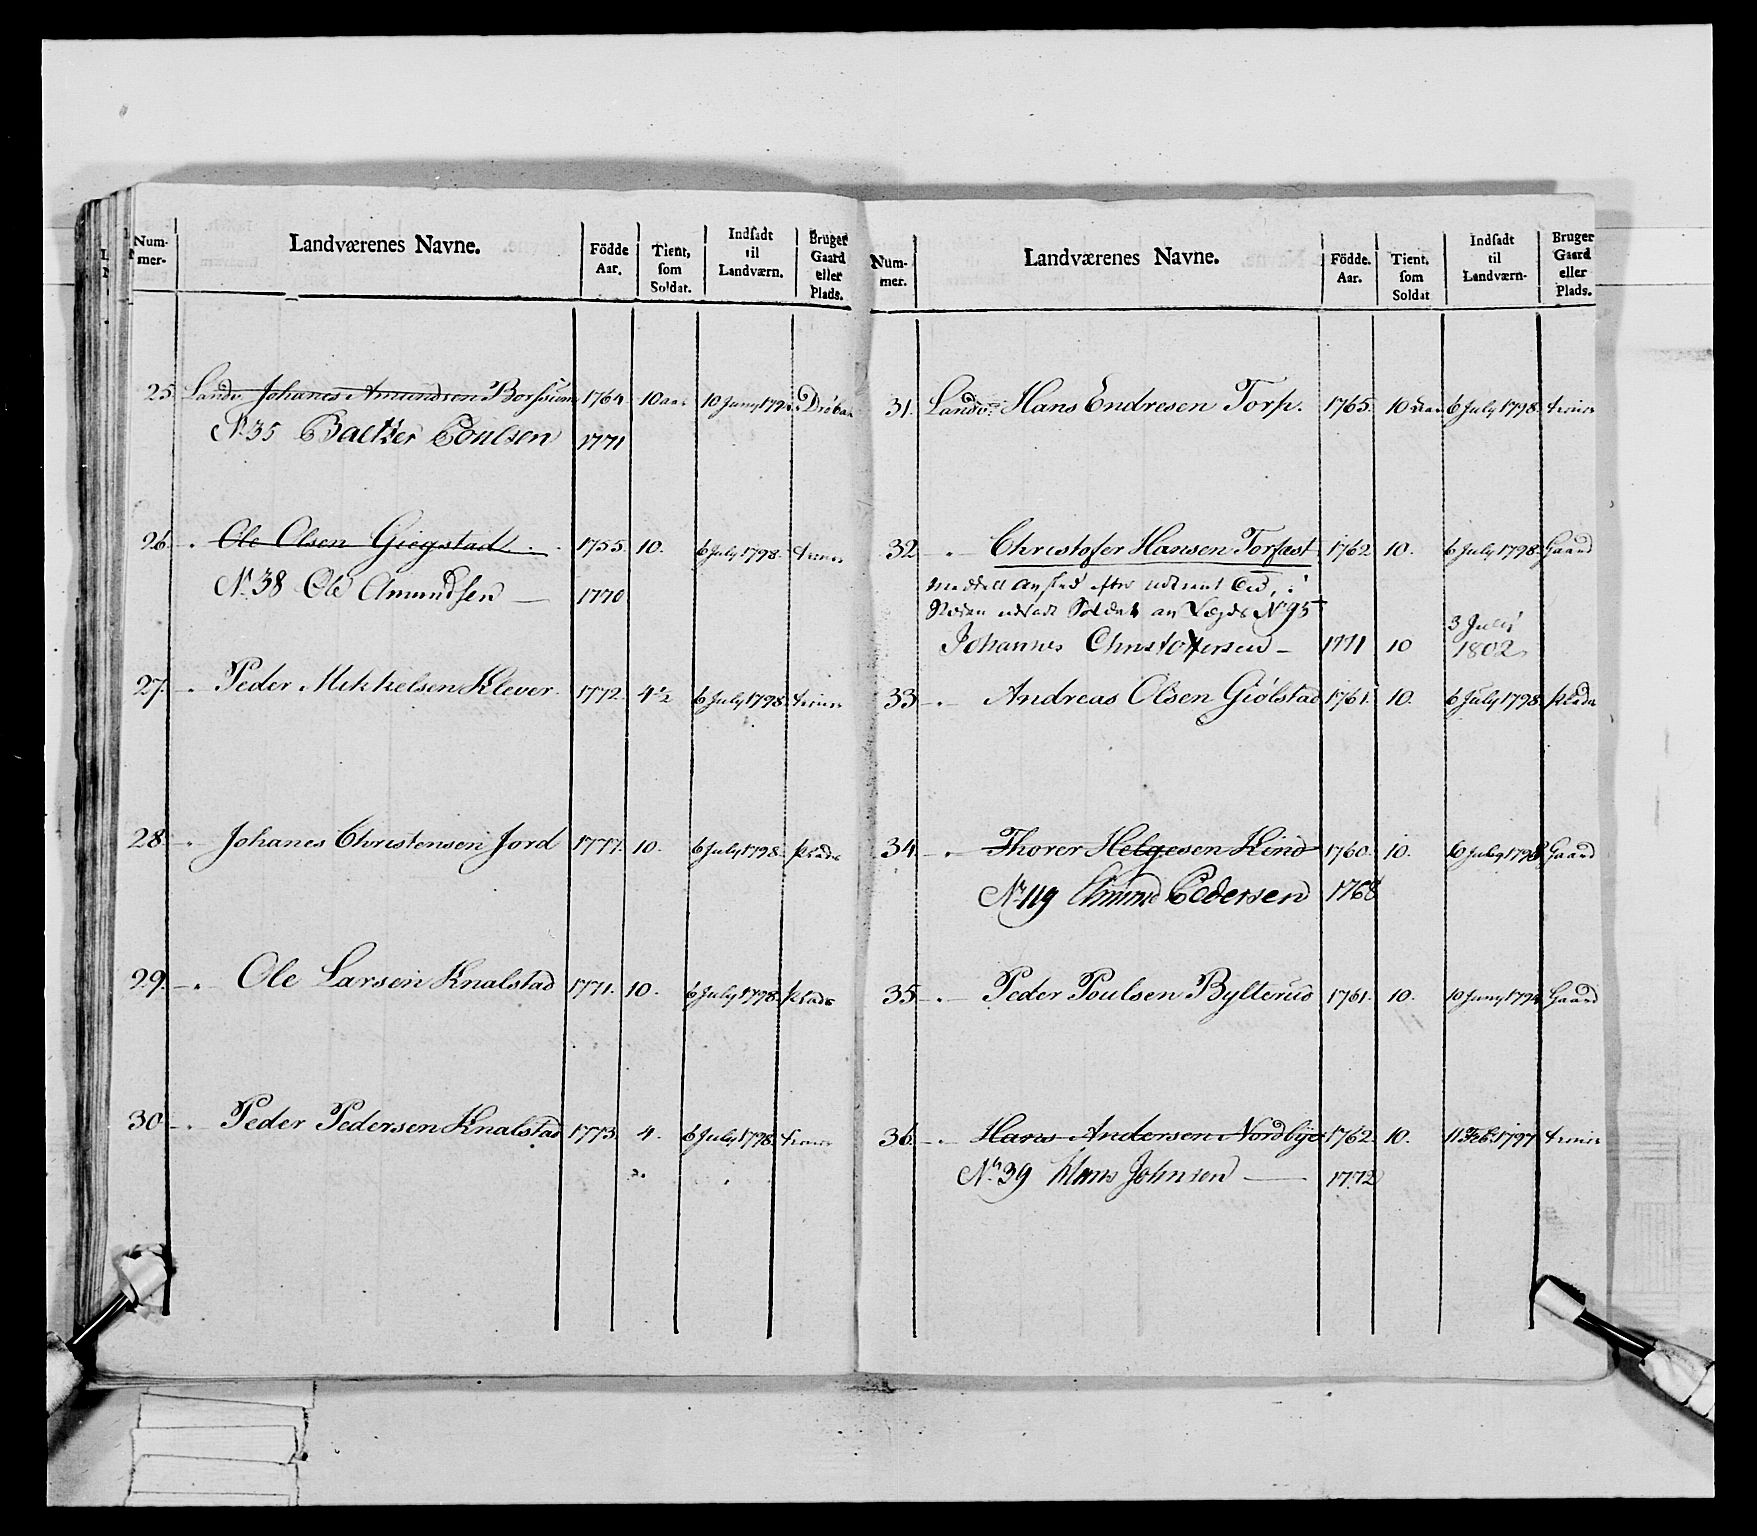 Num-
mer.
Landværenes Navne.
Födde
Aar.
Tient,
som
Soldat.
Indsadt
til
Landværn.
Bruger
Gaard
eller
Plads.
25 Landv. Johanes Amundsen Borssum 1764 10 aar 10 Juny 1794 Dröbak
No 35 Poulsen 1771
26 " Ole Olsen Giegstad 1755. 10. 6 July 1798.
No 38 Ole Amundsen — 1770
27. " Peder Mikkelsen Klever 1772. 4½ 6 July 1798
28 " Johanes Christensen Jord 1777. 10. 6 July 1798. Plads
29. " Ole Larsen Knalstad 1771. 10. 6 July 1798. Plads
30 " Peder Pedersen Knalstad 1773. 4. 6 July 1798.
Num-
mer.
Landværenes Navne.
Födde.
Aar.
Tient,
som
Soldat
Indsadt
til
Landværn.
Bruger
Gaard
eller
Plads.
31. Landv: Hans Endresen Torp. 1765. 10 aar 6 July 1798.
32 " Christofer Hansen Torfæst 1762. 10. 6 July 1798. Gaard
No 95
Johannes Christoffersen — 1771 10 3 Julii 1802.
33 " Andreas Olsen Giölstad 1761. 10. 6 July 1798. Plads
34. " Thorer Helgesen Kind 1760. 10. 6 July 1798 Gaard
No 119 Amund Pedersen 1768
35 " Peder Poulsen Bylterud 1761. 10. 10 Juny 1794 Gaard
36. " Hans Andersen Nordbye 1762. 10. 11 Feb. 1797
No 39 Hans Johnsen — 1772